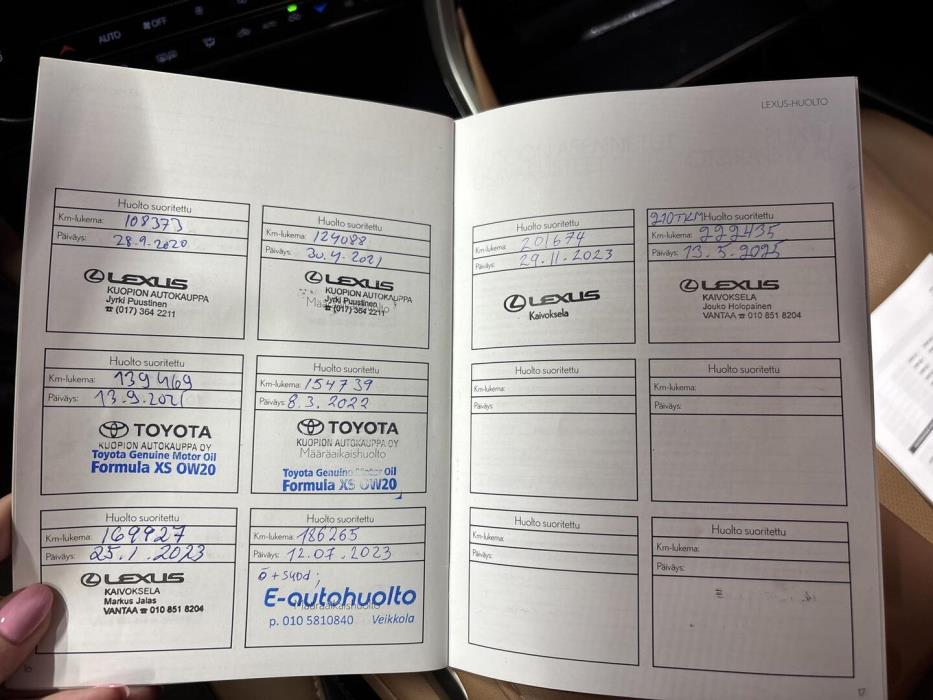 AUTO
OFF
LEXUS-HUOLTO
Huolto suoritettu
Km-lukema: 108373
Päiväys: 28.9.2020
LEXUS
KUOPION AUTOKAUPPA
Jyrki Puustinen
☎ (017) 364 2211
Huolto suoritettu
Km-lukema: 124088
Päiväys: 30.4.2021
LEXUS
KUOPION AUTOKAUPPA
Jyrki Puustinen
Määräaikaishuolto
☎ (017) 364 2211
Huolto suoritettu
Km-lukema: 139469
Päiväys: 13.9.2021
TOYOTA
KUOPION AUTOKAUPPA OY
Toyota Genuine Motor Oil
Formula XS 0W20
Huolto suoritettu
Km-lukema: 154739
Päiväys: 8.3.2022
TOYOTA
KUOPION AUTOKAUPPA OY
Määräaikaishuolto
Toyota Genuine Motor Oil
Formula XS 0W20
Huolto suoritettu
Km-lukema: 169927
Päiväys: 25.1.2023
LEXUS
KAIVOKSELA
Markus Jalas
VANTAA ☎ 010 851 8204
Huolto suoritettu
Km-lukema: 186265
Päiväys: 12.07.2023
ö + suod;
E-autohuolto
Määräaikaishuolto
p. 010 5810840 Veikkola
Huolto suoritettu
Km-lukema: 201674
Päiväys: 29.11.2023
LEXUS
Kaivoksela
210TKM Huolto suoritettu
Km-lukema: 222435
Päiväys: 13.5.2025
LEXUS
KAIVOKSELA
Jouko Holopainen
VANTAA ☎ 010 851 8204
Huolto suoritettu
Km-lukema:
Päiväys:
Huolto suoritettu
Km-lukema:
Päiväys:
Huolto suoritettu
Km-lukema:
Päiväys:
Huolto suoritettu
Km-lukema:
Päiväys:
16
17